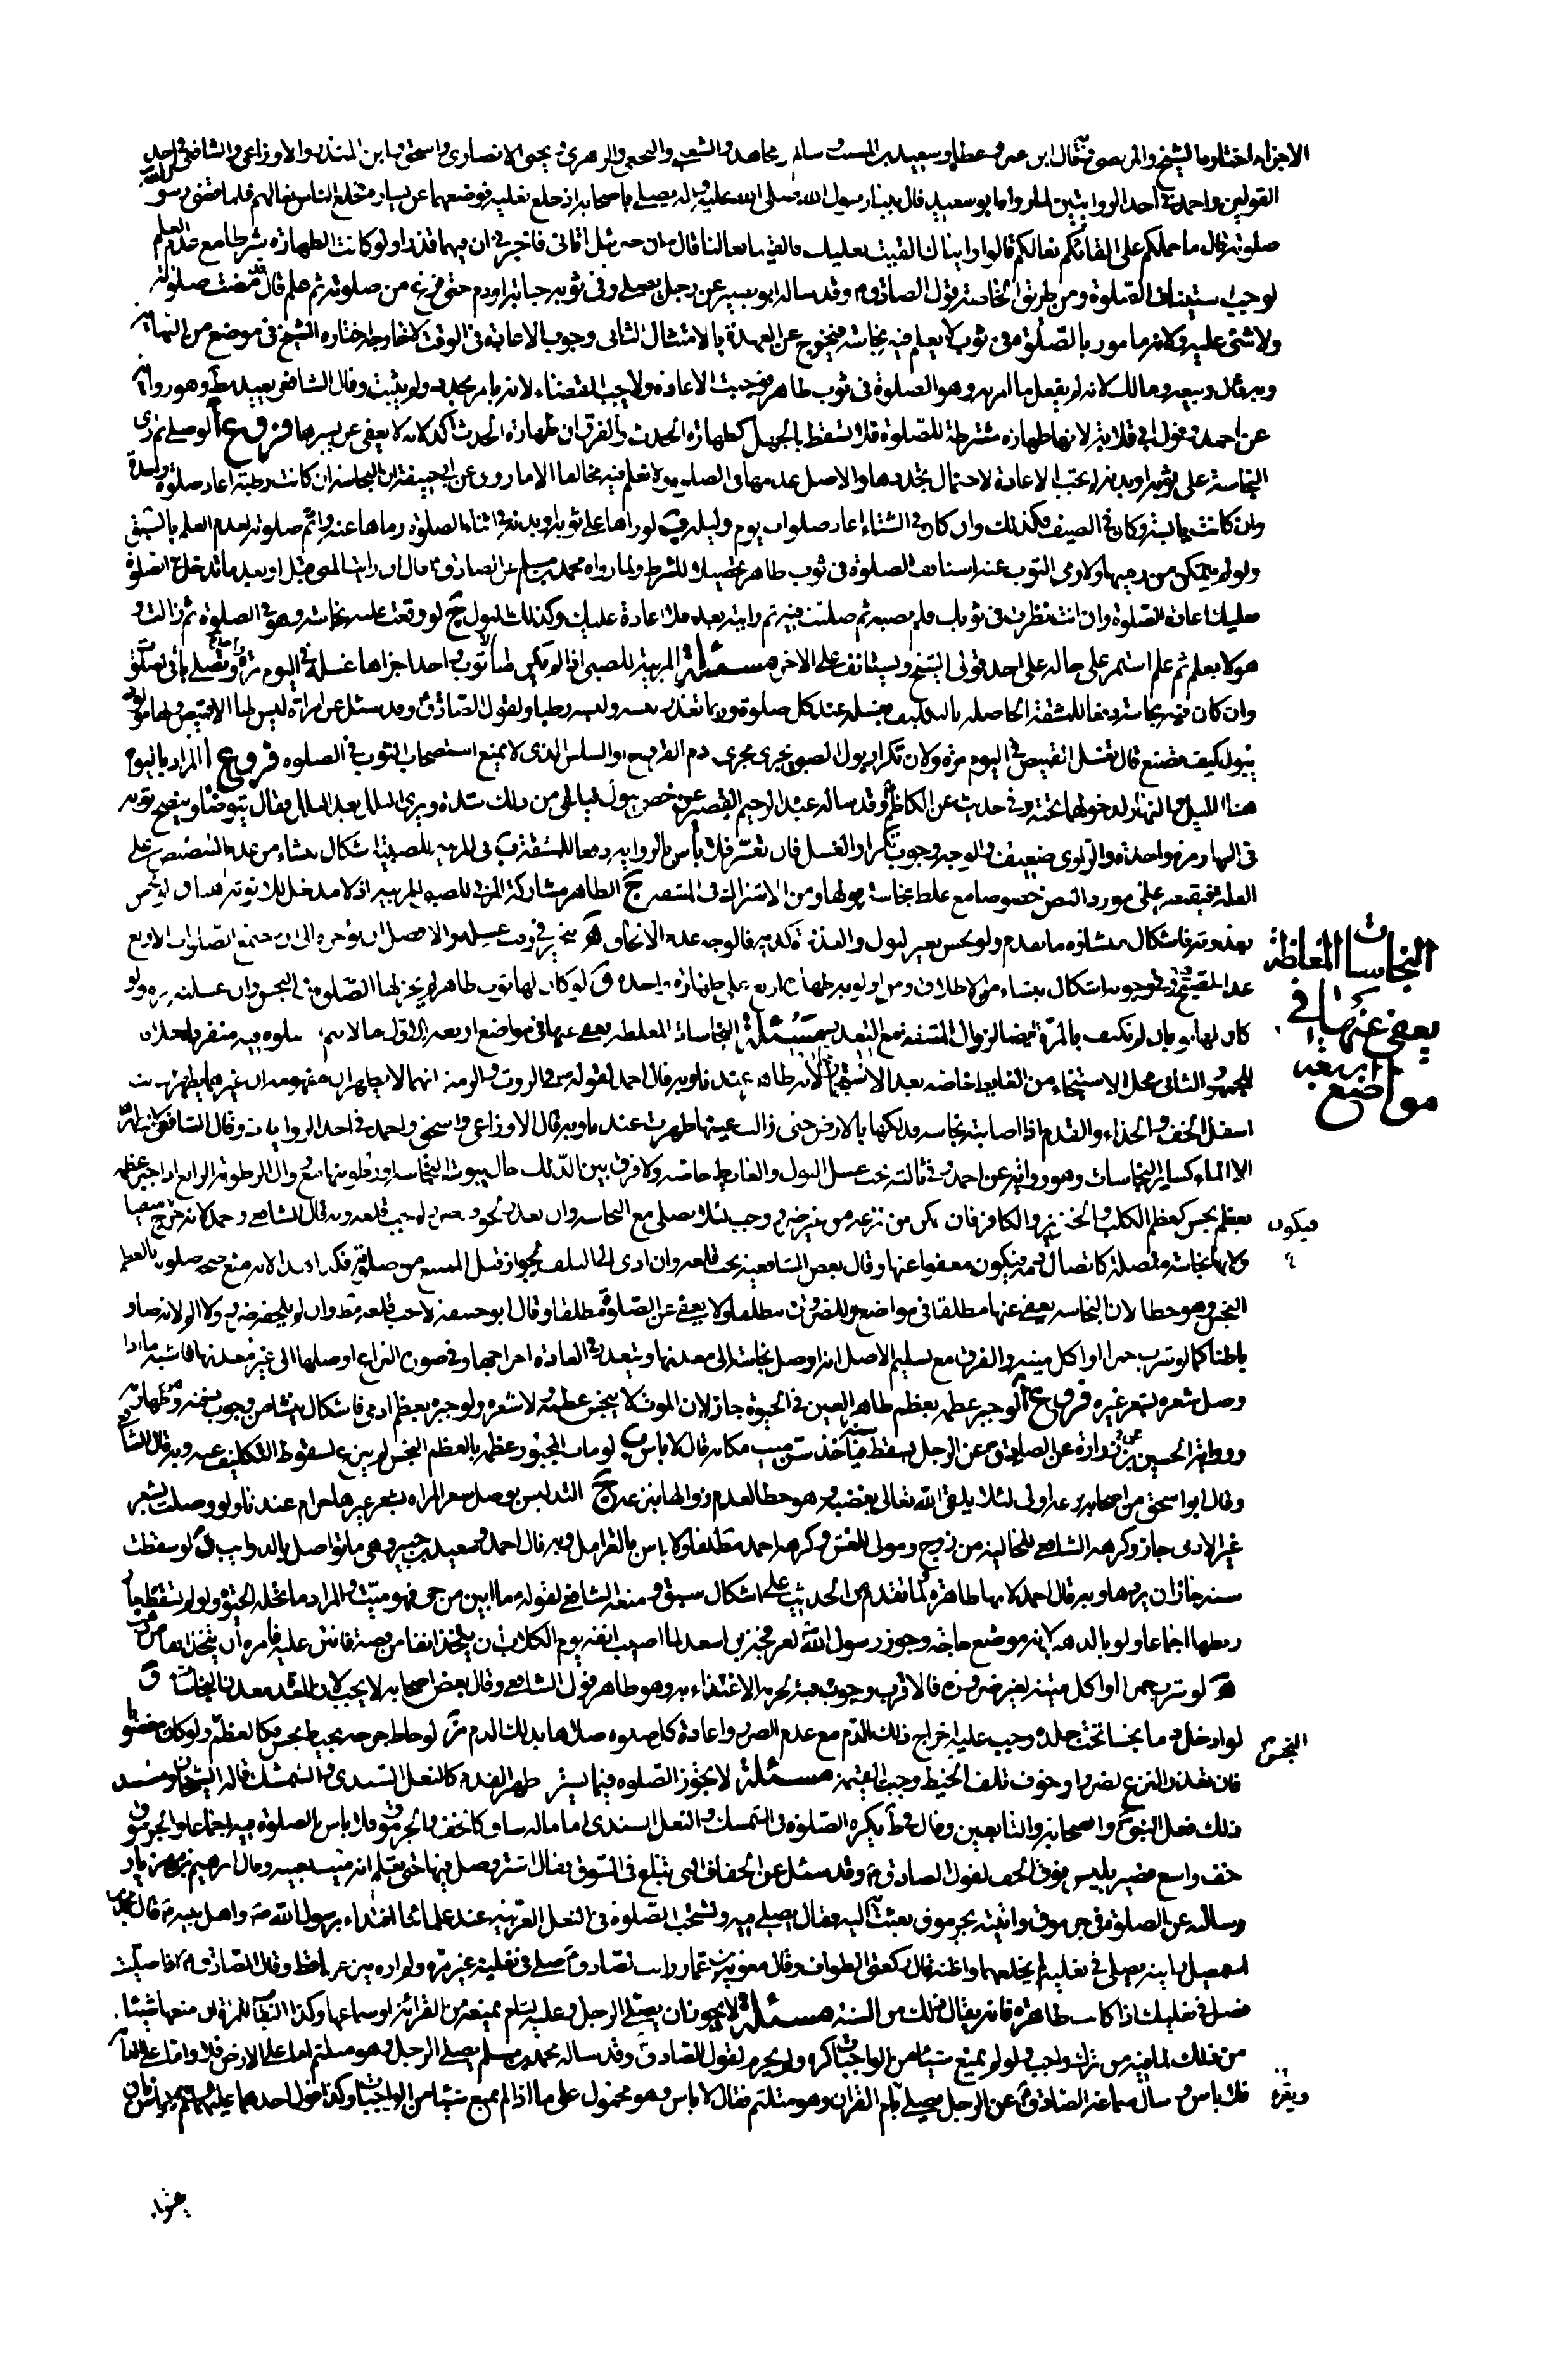 الاجزاء اختاره الشيخ والمرتضى وبه قال ابن عمر وعطا وسعيد بن المسيب وسالم ومجاهد والشعبي والنخعي والزهري ويحيى الانصاري واسحق وابن المنذر والاوزاعي والشافعي في احد
القولين واحمد في احد الروايتين لما رواه ابو سعيد قال بينا رسول الله صلى الله عليه وآله يصلي باصحابه اذ خلع نعليه فوضعهما عن يساره فخلع الناس نعالهم فلما قضى رسول الله
صلوته قال ما حملكم على القائكم نعالكم قالوا رايناك القيت نعليك فالقينا نعالنا قال ان جبرئيل اتاني فاخبرني ان فيهما قذرا ولو كانت الطهارة شرطا مع عدم العلم
لوجب استيناف الصلوة ومن طريق الخاصة قول الصادق وقد ساله ابو بصير عن رجل يصلي وفي ثوبه جنابة او دم حتى فرغ من صلوته ثم علم قال قد مضت صلوته
ولا شئ عليه ولانه مامور بالصلوة في ثوب لا يعلم فيه نجاسة فيخرج عن العهدة بالامتثال الثاني وجوب الاعادة في الوقت لا خارجه اختاره الشيخ في موضع من النهاية
وبه قال ربيعة ومالك لانه لم يفعل ما امر به وهو الصلوة في ثوب طاهر فوجبت الاعادة ولا يجب القضاء لانه بامر مجدد ولم يثبت وقال الشافعي يعيد مط وهو رواية
عن احمد وقول ابي قلابة لانها طهارة مشترطة للصلوة فلا تسقط بالجهل كطهارة الحدث والفرق ان طهارة الحدث آكد لانه لا يعفى عن يسيرها فروع ا لو صلى ثم راى
النجاسة على ثوبه او بدنه لم يجب الاعادة لاحتمال تجددها والاصل عدمها في الصلوة ولا نعلم فيه مخالفا الا ما روي عن ابي حنيفة ان النجاسة ان كانت رطبة اعاد صلوة واحدة
وان كانت يابسة وكان في الصيف فكذلك وان كان في الشتاء اعاد صلوات يوم وليلة ب لو راها على ثوبه او بدنه في اثناء الصلوة رماها عنه واتم صلوته لعدم العلم بالسبق
ولو لم يتمكن من رميها ولا رمي الثوب عنه استانف الصلوة في ثوب طاهر تحصيلا للشرط ولما رواه محمد بن مسلم عن الصادق قال ان رايت المني قبل او بعد ما تدخل في الصلوة
فعليك اعادة الصلوة وان انت نظرت في ثوبك فلم تصبه ثم صليت فيه ثم رايته بعد فلا اعادة عليك وكذلك البول ج لو وقعت عليه نجاسة وهو في الصلوة ثم زالت و
هو لا يعلم ثم علم استمر على حاله على احد قولي الشيخ ويستانف على الاخر مسئلة المربية للصبي اذا لم يكن لها الا ثوب واحد اجزاها غسله في اليوم مرة واحدة وتصلي باقي الصلوة
وان كان فيه نجاسة دفعا للمشقة الحاصلة بالتكليف بغسله عند كل صلوة وربما تعذر يبسه ولبسه رطبا ولقول الصادق وقد سئل عن امراة ليس لها الا قميص ولها مولود
يبول كيف تصنع قال تغسل القميص في اليوم مرة ولان تكرار بول الصبي يجري مجرى دم القروح والسلس الذي لا يمنع استصحاب الثوب في الصلوة فروع ا المراد باليوم
هنا الليل والنهار لدخولهما تحته وفي حديث عن الكاظم وقد ساله عبد الرحيم القصير عن خصي يبول فيلقى من ذلك شدة ويرى البلل بعد البلل فقال يتوضأ وينضح ثوبه
في النهار مرة واحدة والراوي ضعيف والوجه وجوب تكرار الغسل فان تعسر فلا باس بالرواية دفعا للمشقة ب في المربية للصبية اشكال ينشاء من عدم التنصيص على
العلة فيقتصر على مورد النص خصوصا مع غلظ نجاسة بولها ومن الاشتراك في المشقة ج الظاهر مشاركة المربي للصبي المربية اذ لا مدخل للانوثة هنا د لو نجس
بعذرته فاشكال ينشاء مما تقدم ولو نجس بغير البول والعذرة كدمه فالوجه عدم الالحاق ه يتخير في وقت غسله والافضل ان تؤخره الى ان تجتمع الصلوات الاربع
عدا الصبح وفي وجوبه اشكال ينشاء من الاطلاق ومن اولوية طهارة اربع على طهارة واحدة و لو كان لها ثوب طاهر لم يجز لها الصلوة في النجس وان غسلته مرة ولو
كان لها ثوبان لم تكتف بالمرة ايضا لزوال المشقة مع التعدد مسئلة النجاسات المغلظة يعفى عنها في مواضع اربعة الاول ما لا يتم الصلوة فيه منفردا خلافا
للجمهور الثاني محل الاستنجاء من الغايط خاصة بعد الاستجمار لانه طاهر عندنا وبه قال احمد لقوله في الروث والرمة انهما لا يطهران مفهومه ان غيرهما يطهر ث
اسفل الخف والحذاء والقدم اذا اصابته نجاسة فدلكها بالارض حتى زالت عينها طهرت عندنا وبه قال الاوزاعي واسحق واحمد في احد الروايات وقال الشافعي لا يطهر
الا الماء كساير النجاسات وهو رواية عن احمد وفي ثالث يجب غسل البول والغايط خاصة ولا فرق بين الدلك حال يبوسة النجاسة او رطوبتها مع زوال الرطوبة الرابع اذا جبر عظمه
بعظم نجس كعظم الكلب والخنزير والكافر فان تمكن من نزعه من غير ضرر وجب لئلا يصلي مع النجاسة وان تعذر لخوف ضرر لم يجب قلعه وبه قال الشافعي واحمد لانه حرج منفيا
ولانها نجاسة متصلة كاتصال دمه فيكون معفوا عنها وقال بعض الشافعية يجب قلعه وان ادى الى التلف لجواز قتل الممتنع من صلوة فكذا هنا لانه منع صحة صلوته بالعظم
النجس وهو خطا لان النجاسة يعفى عنها مطلقا في مواضع وللضرورة مطلقا ولا يعفى عن الصلوة مطلقا وقال ابو حنيفة لا يجب قلعه مط وان لم يلحقه ضرر ولا الم لانه صار
باطنا كما لو شرب خمرا او اكل ميتة والفرق مع تسليم الاصل انه اوصل نجاسة الى معدنها ويتعذر في العادة اخراجها وفي صورة النزاع اوصلها الى غير معدنها فاشبه ما اذا
وصل شعره بشعر غيره فروع ا لو جبر عظمه بعظم طاهر العين في الحيوة جاز لان الموت لا ينجس عظمه ولا شعره ولو جبره بعظم ادمي فاشكال ينشا من وجوب دفنه وطهارته
ورواية الحسين بن زرارة عن الصادق عن الرجل يسقط سنه فياخذ سن ميت مكانه قال لا باس ب لو مات المجبور عظمه بالعظم النجس لم ينزع لسقوط التكليف عنه وبه قال الشافعي
وقال ابو اسحق من اصحابه نزعه اولى لئلا يلقى الله تعالى بغضب وهو خطا لعدم زوالها بنزعه ج التدليس بوصل شعر المراة بشعر غيرها حرام عندنا ولو وصلت بشعر
غير الادمي جاز وكرهه الشافعي للخالية من زوج ومولى للغش وكرهه احمد مطلقا ولا باس بالقرامل وبه قال احمد وسعيد بن جبير وهي ما تواصل بالذوايب د لو سقطت
سنه جاز ان يردها وبه قال احمد لانها طاهرة لما تقدم من الحديث على اشكال سبق ومنعه الشافعي لقوله ما ابين من حي فهو ميت والمراد ما تحله الحيوة ولو لم تسقط جاز
ربطها اجماعا ولو بالذهب لانه موضع حاجة وجوز رسول الله لعرفجة بن اسعد لما اصيب انفه يوم الكلاب ان يتخذ انفا من فضة فانتن عليه فامره ان يتخذ انفا من ذهب
ه لو شرب خمرا او اكل ميتة لغير ضرورة فالاقرب وجوب قيئه لحرمة الاغتذاء به وهو ظاهر قول الشافعي وقال بعض اصحابه لا يجب لان المعدة معدن النجاسات و
لو ادخل دما نجسا تحت جلده وجب عليه اخراج ذلك الدم مع عدم الضرر واعادة كل صلوة صلاها بذلك الدم ز لو خاط جرحه بخيط نجس فكالعظم ولو كان مغصوبا
فان تعذر النزع لضرر او خوف تلف الخيط وجبت القيمة مسئلة لا يجوز الصلوة فيما يستر ظهر القدم كالنعل السندي والشمشك قاله الشيخان ومستند
ذلك فعل النبي والصحابة والتابعين وقال في ط يكره الصلوة في الشمشك والنعل السندي اما ماله ساق كالخف والجرموق فلا باس بالصلوة فيه اجماعا والجرموق
خف واسع قصير يلبس فوق الخف لقول الصادق وقد سئل عن الخفاف التي تباع في السوق فقال اشتر وصل فيها حتى تعلم انه ميت بعينه وقال ابرهيم بن مهزيار
وسالته عن الصلوة في جرموق واتيته بجرموق بعثت اليه فقال يصلي فيه ويستحب الصلوة في النعل العربية عند علمائنا اقتداء برسول الله واهل بيته قال محمد بن
اسمعيل رايته يصلي في نعليه لم يخلعهما واظنه قال ركعتي الطواف وقال معوية بن عمار رايت الصادق صلى في نعليه غير مرة ولم اره ينزعهما قط وقال الصادق اذا صليت
فصل في نعليك اذا كانت طاهرة فانه يقال ذلك من السنة مسئلة لا يجوز ان يصلي الرجل وعليه لثام يمنعه من القرائة او سماعها وكذا النقاب للمراة ان منعها شيئا
من ذلك لما فيه من ترك واجب ولو لم يمنع شيئا من الواجبات كره ولم يحرم لقول الصادق وقد ساله محمد بن مسلم يصلي الرجل وهو متلثم اما على الارض فلا واما على الدابة
فلا باس وسال سماعة الصادق عن الرجل يصلي ويقرء القران وهو متلثم فقال لا باس وهو محمول على ما اذا لم يمنع شيئا من الواجبات
النجاسات المغلظة
يعفى عنها في
اربعة
مواضع
فيكون
النجس
ويقرء